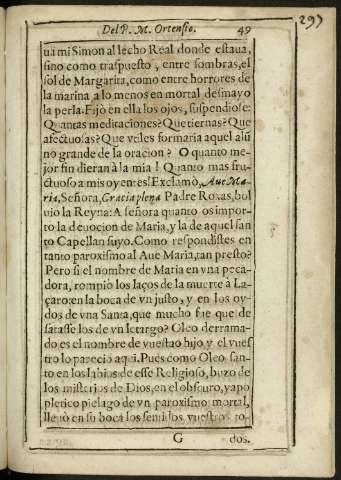 297
Del P. M. Ortensio. 49
ua mi Simon al lecho Real donde estaua,
sino como traspuesto, entre sombras, el
sol de Margarita, como entre horrores de
la marina a lo menos en mortal desmayo
la perla. Fijò en ella los ojos, suspendiose:
Quantas meditaciones? Que tiernas? Que
afectuosas? Que veles formaria aquel alũ
no grande de la oracion? O quanto me-
jor fin dieran à la mia! Quanto mas fru-
ctuoso a mis oyentes! Exclamò, Aue Ma-
ria, Señora, Gracia plena Padre Roxas, bol
uio la Reyna: A señora quanto os impor-
to la deuocion de Maria, y la de aquel san
to Capellan suyo. Como respondistes en
tanto paroxismo al Aue Maria, tan presto?
Pero si el nombre de Maria en vna peca-
dora, rompio los laços de la muerte à La-
çaro: en la boca de vn justo, y en los oy-
dos de vna Santa, que mucho fue que de
satasse los de vn letargo? Oleo derrama-
do es el nombre de vuestro hijo, y el vues
tro lo parecio aqui. Pues como Oleo san-
to en los labios de esse Religioso, buzo de
los misterios de Dios, en el obscuro, y apo
pletico pielago de vn paroxismo mortal,
lleuò en su boca los sentidos vuestros to-
G dos.